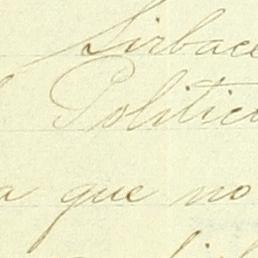 Sirbace
Politico
a que no